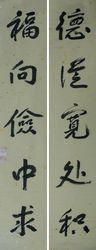 德从宽处积
福向儉中求